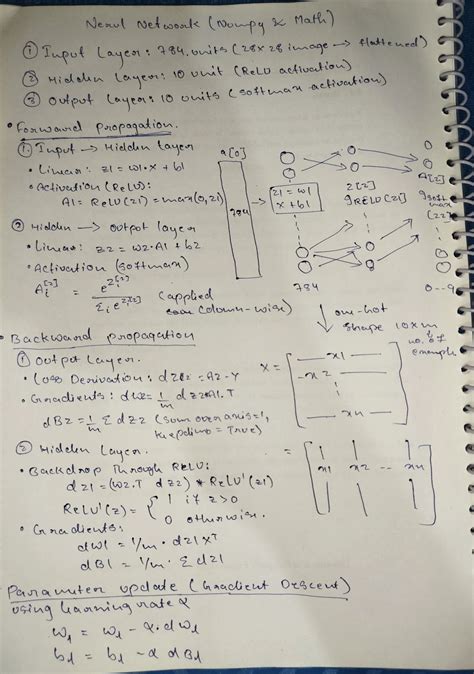 Nerul Network (Numpy & Math)
① Input Layer: 784 units (28x28 image → flattened)
② Hidden Layer: 10 unit (ReLU activation)
③ Output Layer: 10 units (softmax activation)
• Forward propagation.
① Input → Hidden layer
• Linear: z1 = w1·x + b1
• Activation (ReLU):
A1 = ReLU(z1) = max(0, z1)
② Hidden → Output layer
• Linear: z2 = w2·A1 + b2
• Activation (softmax)
A_i^[2] = e^z_i^[2] / Σ_i e^z_i^[2] (applied
column-wise)
a[0]
784
z1 = w1
x + b1
z[2]
g ReLU(z1)
A[2]
g soft
max
(z2)
784
0--9
one-hot
shape 10xm
no. of
example
• Backward propagation
① Output Layer.
• Loss Derivation: dZ2 = A2 - Y
• Gradients: dW2 = 1/m dZ2 A1.T
dB2 = 1/m Σ dZ2 (sum over axis=1,
keepdims = True)
X = [ — x1 —
— x2 —
— xn — ]
② Hidden Layer.
• Backdrop Through ReLU:
dZ1 = (W2.T dZ2) * ReLU'(z1)
ReLU'(z) = { 1 if z>0
0 otherwise.
• Gradients:
dW1 = 1/m · dZ1 X^T
dB1 = 1/m · Σ dZ1
= [ x1 x2 -- xn ]
Parameter update (Gradient Descent)
using learning rate α
w1 = w1 - α·dw1
b1 = b1 - α dB1